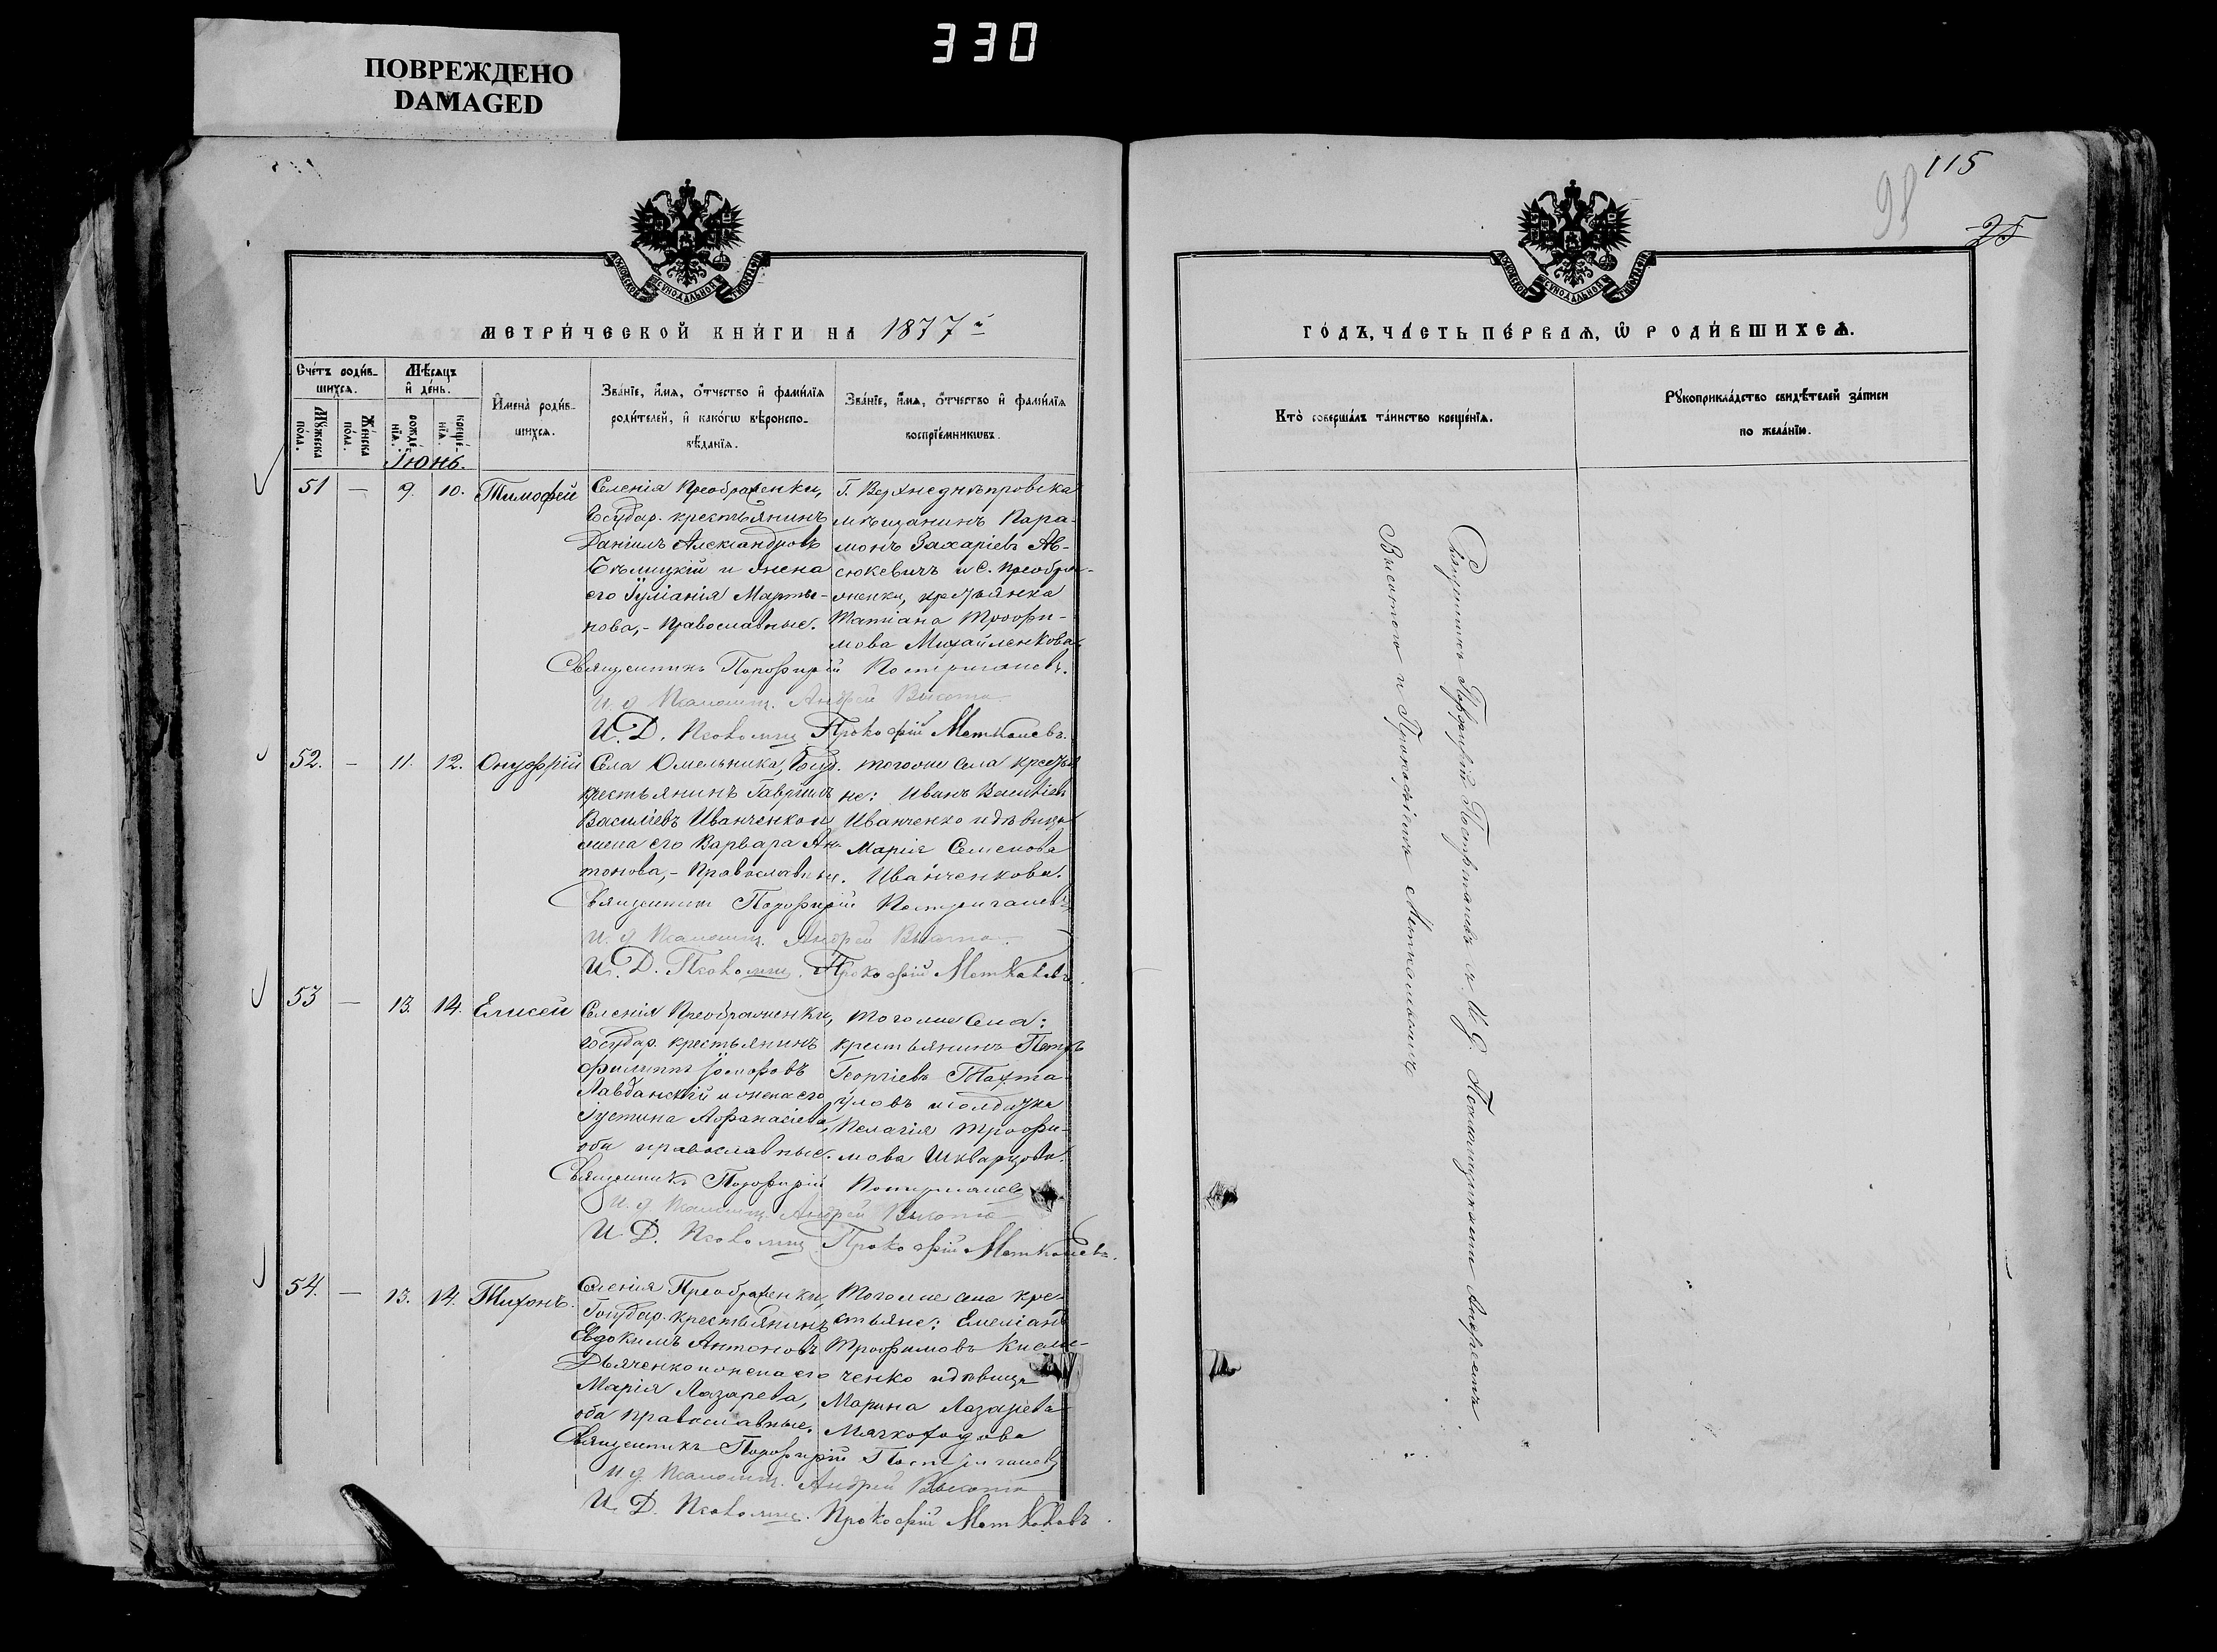 330
ПОВРЕЖДЕНО
DAMAGED
МЕТРИ́ЧЕСКОЙ КНИ́ГИ НА 1877й
Сче́тъ роди́в-
шихсѧ.
Мꙋ́жеска по́ла.
Же́нска по́ла.
Мѣ́сѧцъ
и де́нь.
рожде́нїѧ.
креще́нїѧ.
Имена̀ роди́в-
шихсѧ.
Зва́нїе, и́мѧ, ѻ́тчество и фами́лїѧ
роди́телей, и како́гѡ вѣроиспо-
вѣ́данїѧ.
Зва́нїе, и́мѧ, ѻ́тчество и фами́лїѧ
воспрїе́мникѡвъ.
Іюнь.
51 — 9. 10. Тимофей
Селенія Преображенки,
Государ. крестьянинъ
Даніилъ Александровъ
Бѣлицкій и жена
его Іуліанія Марты-
нова,- православные.
Г. Верхнеднѣпровска
мѣщанинъ Пара-
монъ Захаріевъ Ав-
сюкевичъ и С. Преобра-
женки, крестьянка
Татіана Трофи-
мова Михайленкова
Священникъ Порфирій Постриганевъ.
И. д. Псаломщ. Андрей Высота
И. Д. Псаломщ Прокофій Меткалевъ.
52. — 11. 12. Онуфрій
Села Омельника, Госуд.
крестьянинъ Гавріилъ
Василіевъ Иванченко и
жена его Варвара Ан-
тонова,- православные.
тогоже села крестья
не: Иванъ Василіевъ
Иванченко и дѣвица
Марія Семенова
Иванченкова.
Священникъ Порфирій Постриганевъ
И. д Псаломщ. Андрей Высота
И. Д. Псаломщ. Прокофій Меткалевъ.
53 — 13. 14. Елисей
Селенія Преображенки,
государ. крестьянинъ
Филиппъ Іосифовъ
Лавданскій и жена его
Іустина Афанасіева,
оба православные.
тогоже села:
крестьянинъ Петръ
Георгіевъ Тахта-
уловъ и солдатка
Пелагія Трофи-
мова Шкварцова.
Священникъ Порфирій Постриганевъ
И. д. Псаломщ. Андрей Высота
И Д. Псаломщ Прокофій Меткалевъ.
54. — 13. 14. Тихонъ.
Селенія Преображенки,
Государ. крестьянинъ
Евдокимъ Антоновъ
Дьяченко и жена его
Марія Лазарева,
оба православные.
Тогоже села кре-
стьяне: Емеліанъ
Трофимовъ
ченко и дѣвица
Марина Лазарева
Мягкоходова
Священникъ Порфирій Постриганевъ
И. д. Псаломщ. Андрей Высота
И. Д. Псаломщ. Прокофій Меткалевъ
115
98
25
ГО́ДЪ, ЧА́СТЬ ПЕ́РВАѦ, Ѿ РОДИ́ВШИХСѦ.
Кто̀ соверша́лъ та́инство креще́нїѧ.
Рꙋкоприкла́дство свидѣ́телей за́писи
по жела́нїю.
Священникъ Порфирій Постриганевъ съ И. д. Псаломщиками Андреемъ
Высотою и Прокофіемъ Меткалевымъ